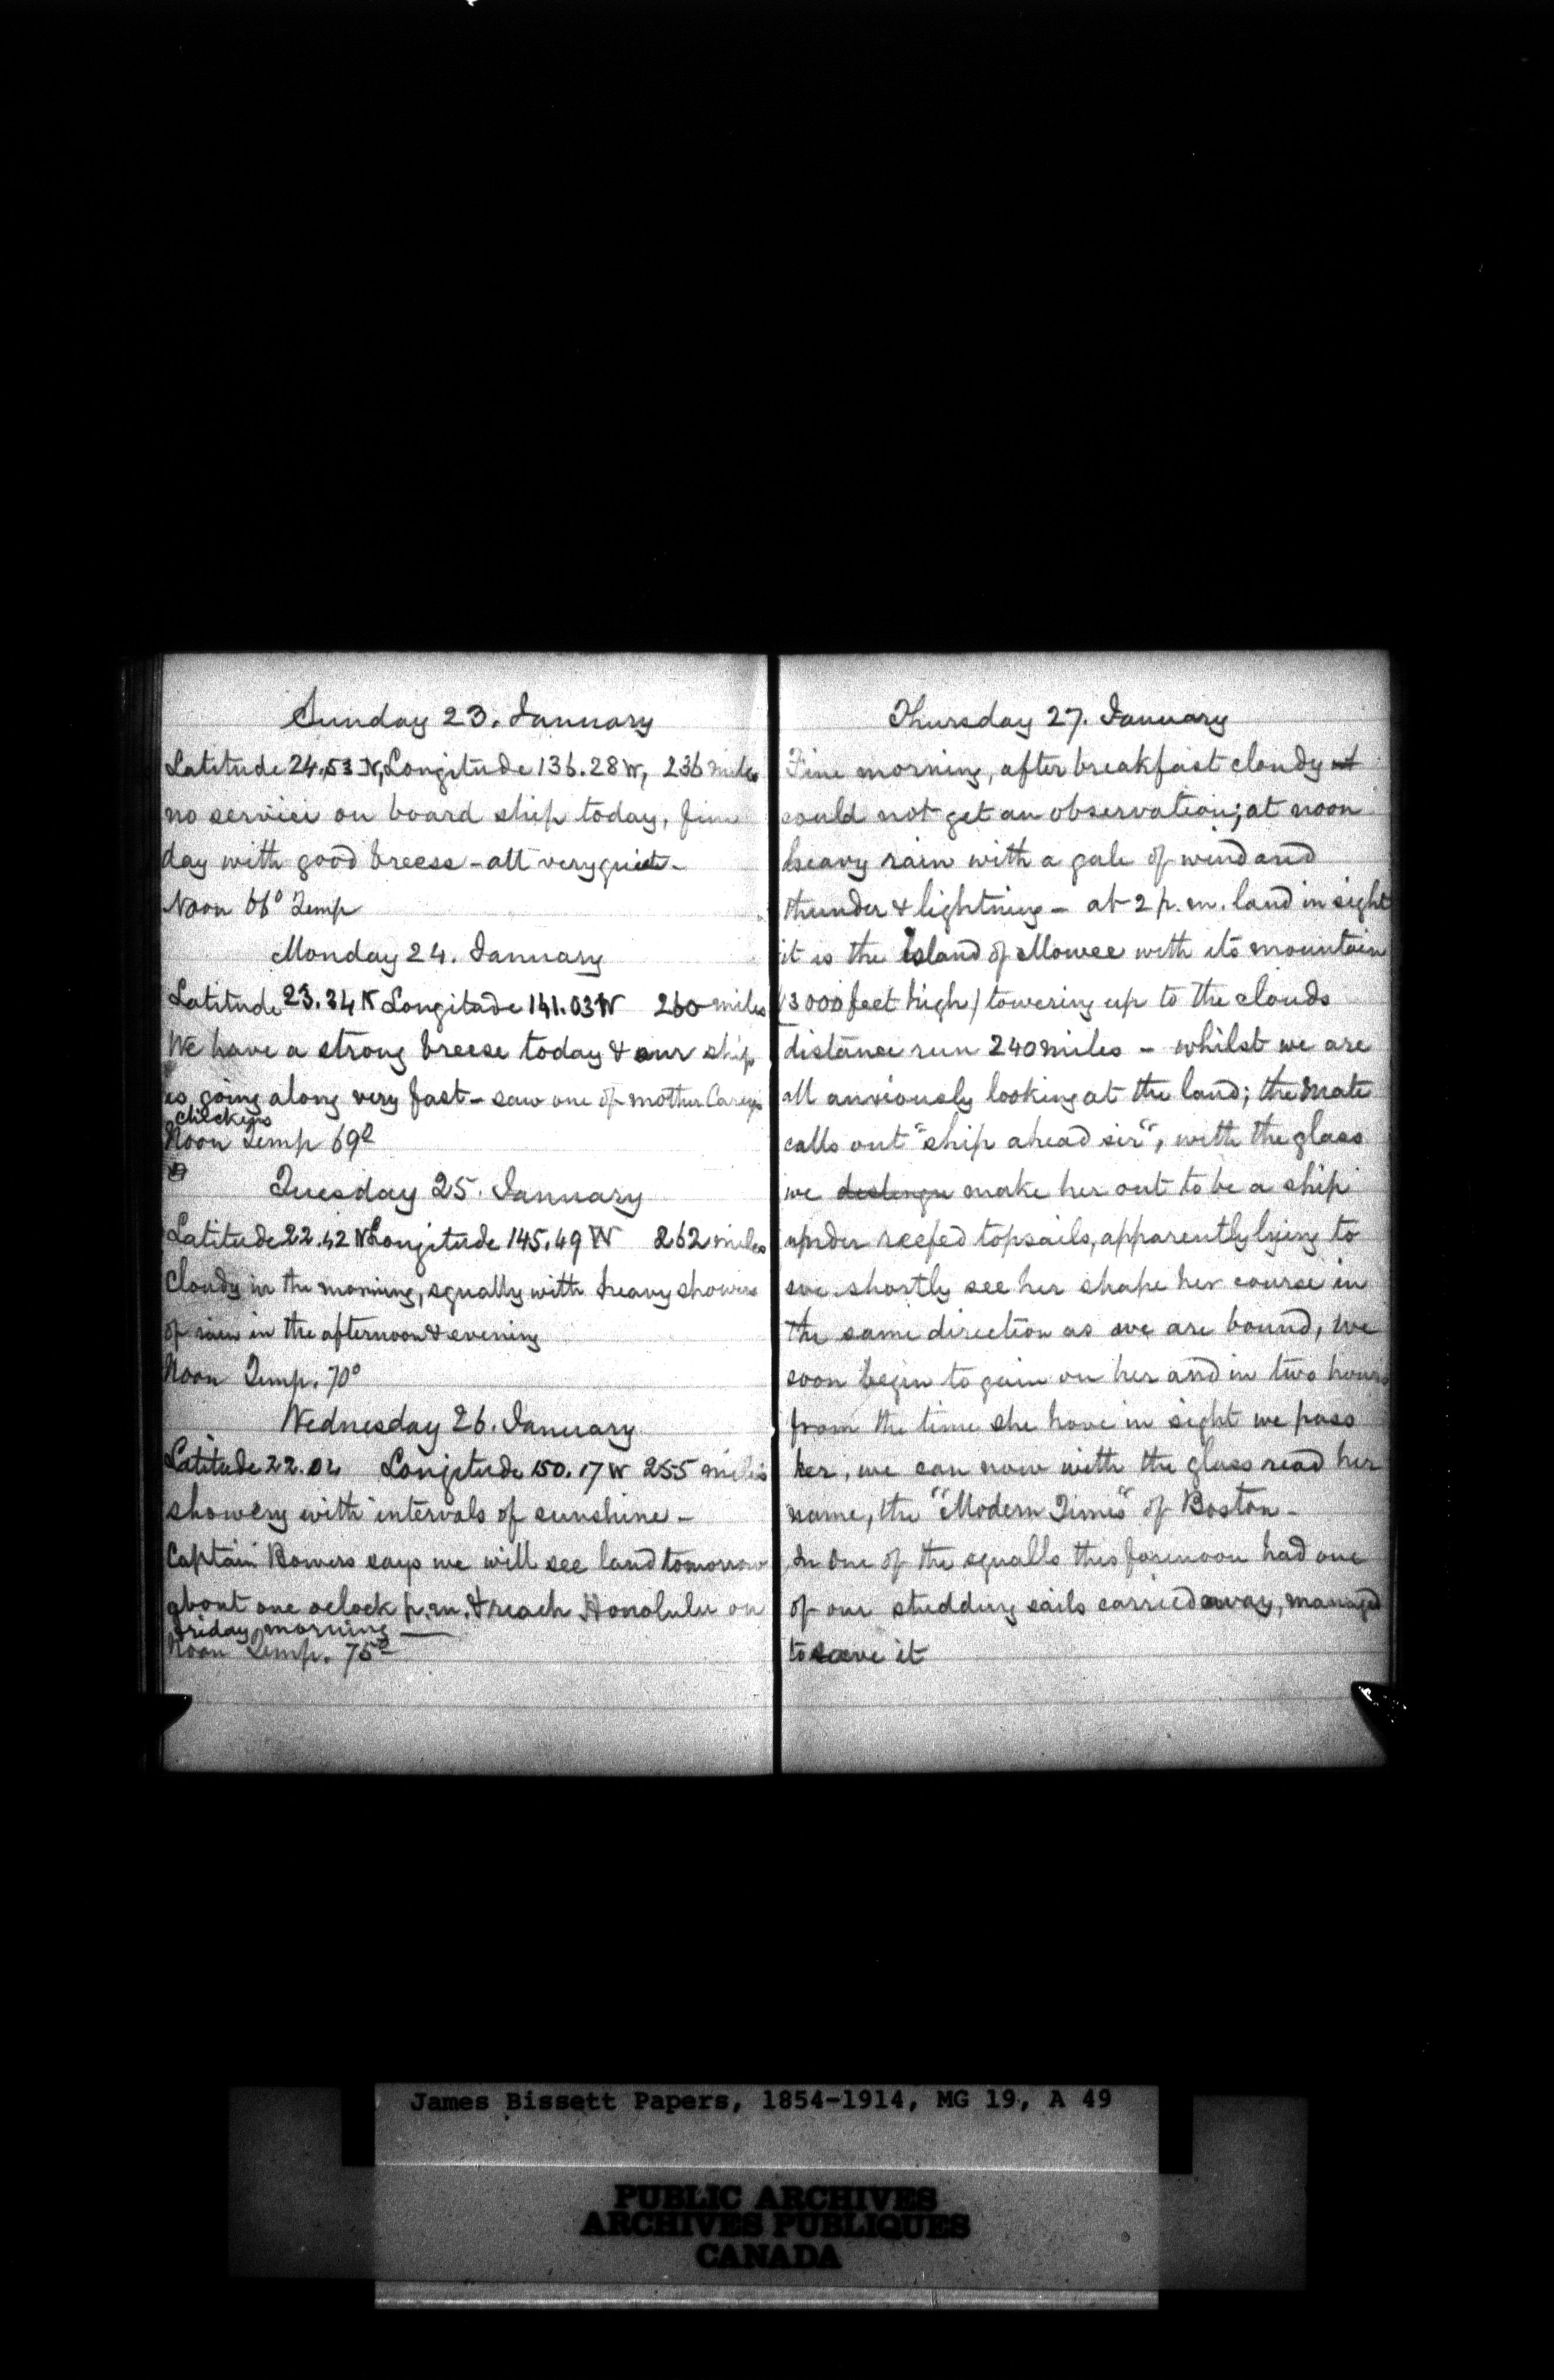 Sunday 23. January
Latitude 24.53 N, Longitude 136.28 W, 236 miles
no service on board ship today, fine
day with good breese - all very quiet -
Noon 66° Temp
Monday 24. January
Latitude 23.34 N Longitude 141.03 W 260 miles
We have a strong breese today & our ship
is going along very fast - saw one of mother Careys
chickens
Noon Temp 69°
Tuesday 25. January
Latitude 22.42 N Longitude 145.49 W 262 miles
Cloudy in the morning, squally with heavy showers
of rain in the afternoon & evening
Noon Temp. 70°
Wednesday 26. January
Latitude 22.04 Longitude 150.17 W 255 miles
showery with intervals of sunshine -
Captain Bowers says we will see land tomorrow
about one oclock p.m. & reach Honolulu on
Friday morning
Noon Temp. 75°
Thursday 27. January
Fine morning, after breakfast cloudy at
could not get an observation; at noon
heavy rain with a gale of wind and
thunder & lightning - at 2 p.m. land in sight
it is the Island of Mowee with its mountain
(3000 feet high) towering up to the clouds
distance run 240 miles - whilst we are
all anxiously looking at the land; the Mate
calls out "ship ahead sir", with the glass
we make her out to be a ship
under reefed topsails, apparently lying to
we shortly see her shape her course in
the same direction as we are bound, we
soon begin to gain on her and in two hours
from the time she hove in sight we pass
her, we can now with the glass read her
name, the "Modern Times" of Boston -
In one of the squalls this forenoon had one
of our studding sails carried away, managed
to save it
James Bissett Papers, 1854-1914, MG 19, A 49
PUBLIC ARCHIVES
ARCHIVES PUBLIQUES
CANADA